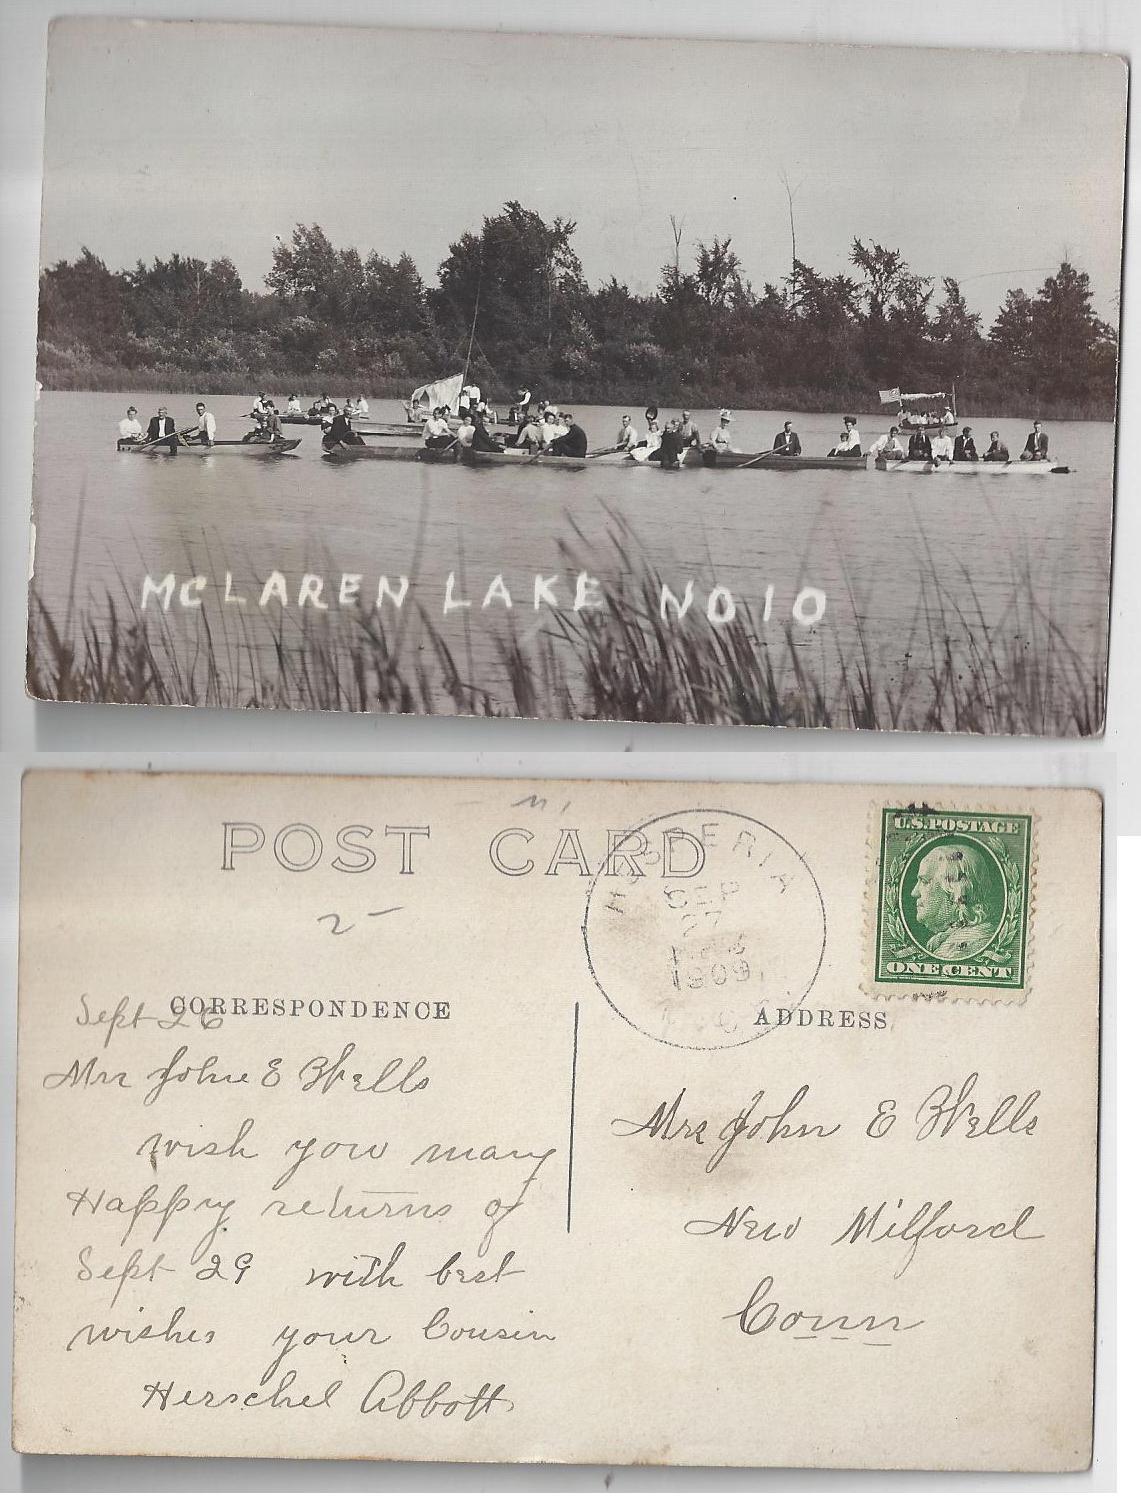 MCLAREN LAKE NO 10
POST CARD
2-
HESPERIA
SEP
27
1909
U.S. POSTAGE
ONE CENT
CORRESPONDENCE
ADDRESS
Sept 26
Mrs John E Wells
wish you many
Happy returns of
Sept 29 with best
wishes your Cousin
Herschel Abbott
Mrs John E Wells
New Milford
Conn